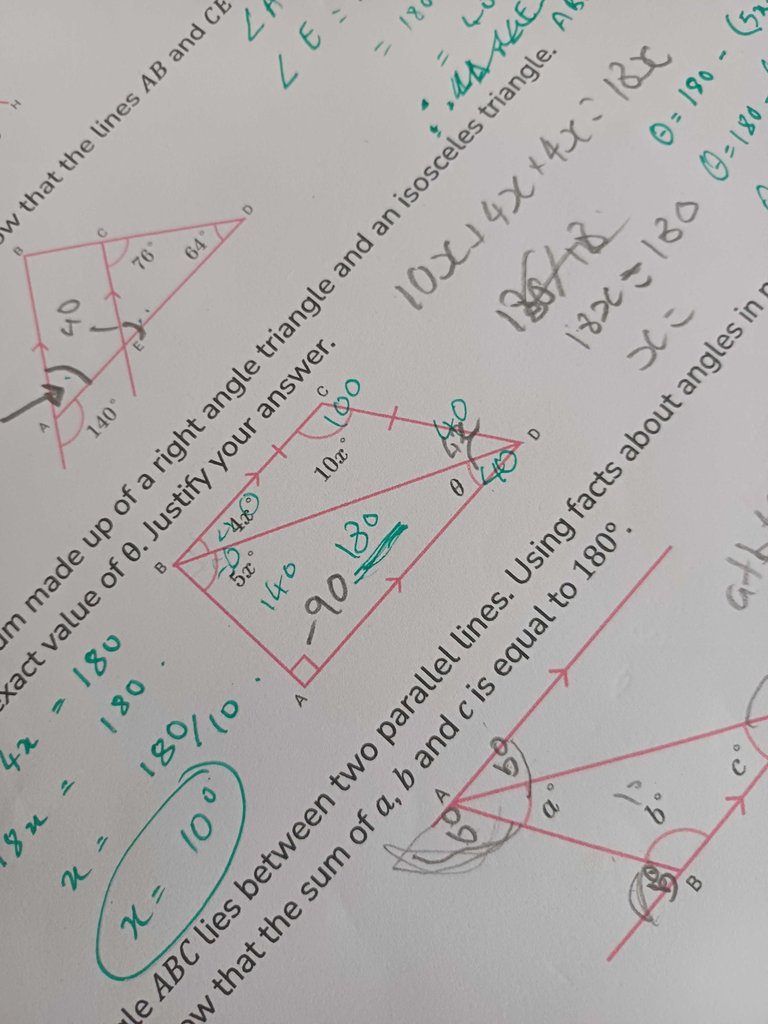 ow that the lines AB and CE
∠A
∠E =
= 180
= 40
B
C
D
76°
64°
40
E
A
140°
um made up of a right angle triangle and an isosceles triangle.
exact value of θ. Justify your answer.
10x + 4x + 4x = 18x
18x = 180
x =
θ = 180 - (5x
θ = 180 -
C
100
10x°
40
D
40
θ
4x°
B
5x°
140
180
-90
A
4x = 180
18x = 180.
x = 180/10.
x = 10°
gle ABC lies between two parallel lines. Using facts about angles in
ow that the sum of a, b and c is equal to 180°.
a+b
A
b°
b°
a°
b°
c°
B